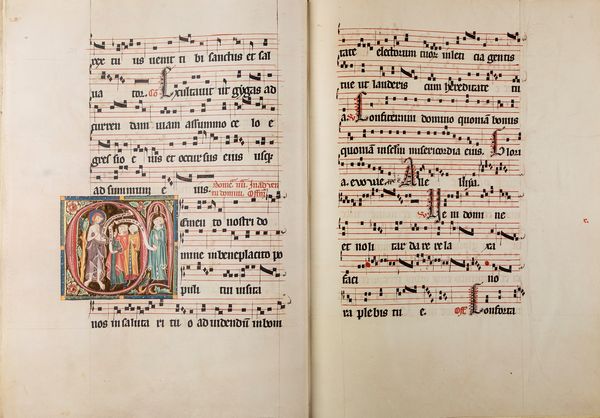 rex tu us uenit ti bi sanctus et sal
ua tor. Co Exultauit ut gygas ad
curren dam uiam a summo ce lo e
gres sio e ius et occursus eius usq
ad summum e ius.
Memen to nostri do
mine in bene placito po
puli tui uisita
nos in saluta ri tu o ad uidendum in bon
tate electorum tuor in leti cia gentis
tue ut lauderis cum hereditate tu
a. Confitemini domino quoniam bonus
quoniam in sclm misericordia eius. Glori
a. evovae Alle luia.
Ueni domi ne
et noli tar da re re la xa
faci no
ra plebis tu e. Off Conforta